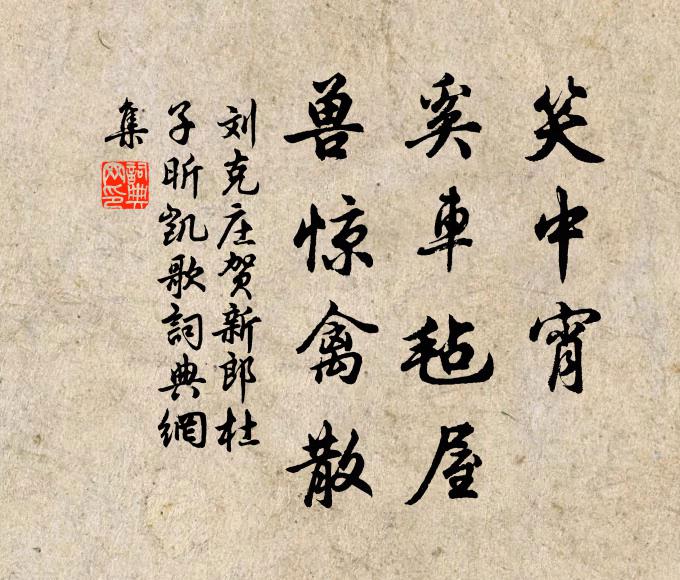 笑中宵
奚車毡屋
兽惊禽散
刘克庄贺新郎杜
子昕凯歌詞典網
集
詞典
网印